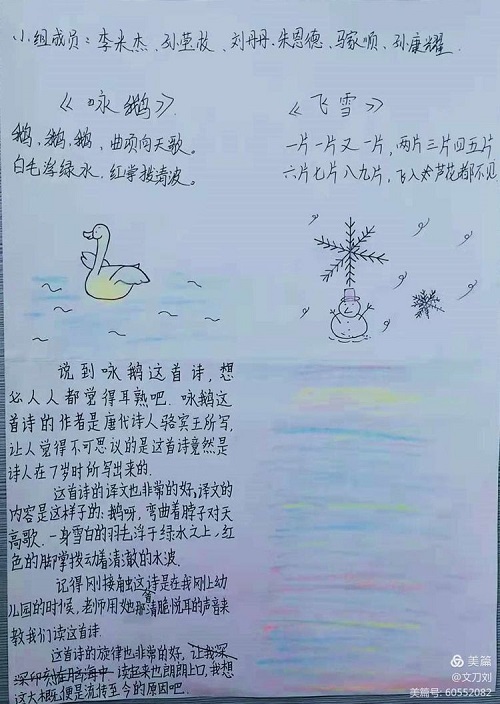 小组成员：李米杰、孙莹枚、刘丹丹、朱恩德、马家顺、孙康耀
《咏鹅》
鹅，鹅，鹅，曲项向天歌。
白毛浮绿水，红掌拨清波。
《飞雪》
一片一片又一片，两片三片四五片
六片七片八九片，飞入芦花都不见
说到咏鹅这首诗，想
必人人都觉得耳熟吧．咏鹅这
首诗的作者是唐代诗人骆宾王所写，
让人觉得不可思议的是这首诗竟然是
诗人在7岁时所写出来的．
这首诗的译文也非常的好，译文的
内容是这样子的：鹅呀，弯曲着脖子对天
高歌．一身雪白的羽毛浮于绿水之上，红
色的脚掌拨动着清澈的水波．
记得刚接触这首诗是在我刚上幼
儿园的时候，老师用她那清脆悦耳的声音来
教我们读这首诗．
这首诗的旋律也非常的好，让我深
深印刻在脑海中．读起来也朗朗上口，我想
这大概便是流传至今的原因吧．
美篇
@文刀刘
美篇号：60552082